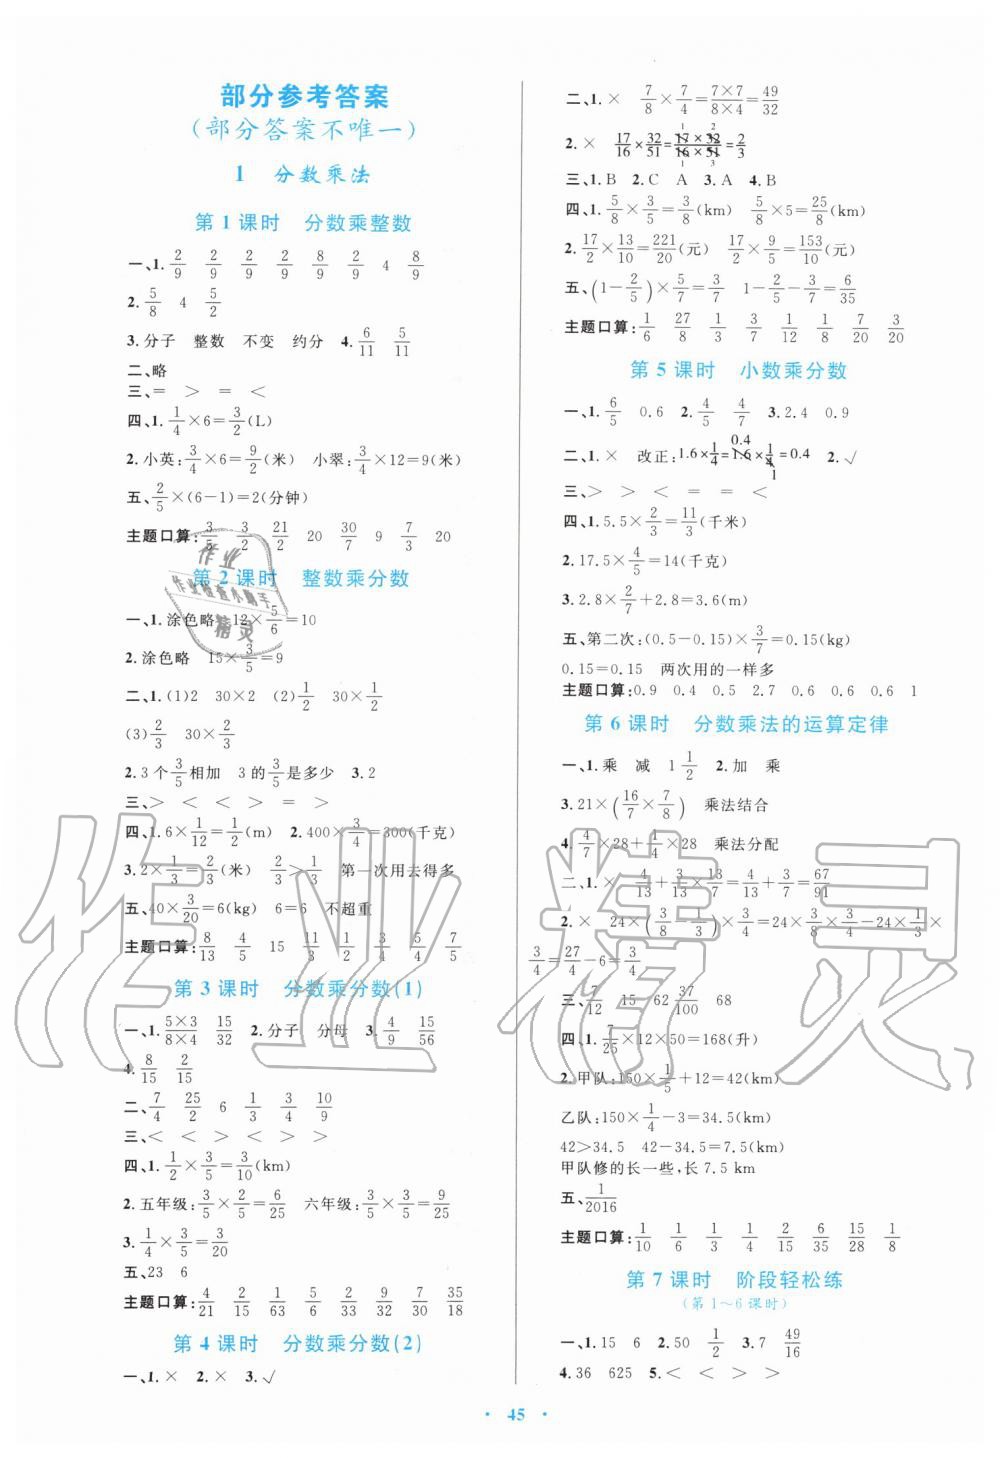 部分参考答案
(部分答案不唯一)
1 分数乘法
第 1 课时 分数乘整数
一、1. 2/9 2/9 2/9 2/9 8/9 2/9 4 8/9
2. 5/8 4 5/2
3. 分子 整数 不变 约分 4. 6/11 5/11
二、略
三、= > = <
四、1. 1/4×6=3/2(L)
2. 小英:3/4×6=9/2(米) 小翠:3/4×12=9(米)
五、2/5×(6-1)=2(分钟)
主题口算: 3/5 3/2 21/2 20 30/7 9 7/3 20
第 2 课时 整数乘分数
一、1. 涂色略 12×5/6=10
2. 涂色略 15×3/5=9
二、1. (1)2 30×2 (2)1/2 30×1/2
(3)2/3 30×2/3
2. 3个3/5相加 3的3/5是多少 3. 2
三、> < < > = >
四、1. 6×1/12=1/2(m) 2. 400×3/4=300(千克)
3. 2×1/3=2/3(米) 2/3>1/3 第一次用去得多
五、40×3/20=6(kg) 6=6 不超重
主题口算: 8/13 4/5 15 11/3 1/2 3/4 5/4 7/5
第 3 课时 分数乘分数(1)
一、1. 5×3/8×4 15/32 2. 分子 分母 3. 4/9 15/56
4. 8/15 2/15
二、7/4 25/2 6 1/3 3/4 10/9
三、< < > < > <
四、1. 1/2×3/5=3/10(km)
2. 五年级:3/5×2/5=6/25 六年级:3/5×3/5=9/25
3. 1/4×3/5=3/20
五、23 6
主题口算: 4/21 2/15 1/63 5/32 8/33 9/20 7/30 35/18
第 4 课时 分数乘分数(2)
一、1. × 2. × 3. √
二、1. × 7/8×7/4=7×7/8×4=49/32
2. × 17/16×32/51=17×32/16×51=2/3
三、1. B 2. C A 3. A 4. B
四、1. 5/8×3/5=3/8(km) 5/8×5=25/8(km)
2. 17/2×13/10=221/20(元) 17/2×9/5=153/10(元)
五、(1-2/5)×5/7=3/7 1-2/5-3/7=6/35
主题口算: 1/6 27/8 1/3 3/7 1/12 1/8 7/20 3/20
第 5 课时 小数乘分数
一、1. 6/5 0.6 2. 4/5 4/7 3. 2.4 0.9
二、1. × 改正:1.6×1/4=1.6×1/4=0.4 2. √
三、> > > = = <
四、1. 5.5×2/3=11/3(千米)
2. 17.5×4/5=14(千克)
3. 2.8×2/7+2.8=3.6(m)
五、第二次:(0.5-0.15)×3/7=0.15(kg)
0.15=0.15 两次用的一样多
主题口算: 0.9 0.4 0.5 2.7 0.6 0.6 0.6 1
第 6 课时 分数乘法的运算定律
一、1. 乘 减 1 1/2 2. 加 乘
3. 21×(16/7×7/8) 乘法结合
4. 4/7×28+1/4×28 乘法分配
二、1. × 4/13+3/13×13/7=4/13+3/7=67/91
2. × 24×(3/8-1/3)×3/4=24×3/8×3/4-24×1/3×
3/4=27/4-6=3/4
三、7/12 15 62 37/100 68
四、1. 7/25×12×50=168(升)
2. 甲队:150×1/5+12=42(km)
乙队:150×1/4-3=34.5(km)
42>34.5 42-34.5=7.5(km)
甲队修的长一些,长 7.5 km
五、1/2016
主题口算: 1/10 1/6 1/3 1/4 2/15 6/35 15/28 1/8
第 7 课时 阶段轻松练
(第 1~6 课时)
一、1. 15 6 2. 50 1/2 3. 7 49/16
4. 36 625 5. < < > >
• 45 •
作业
作业检查小助手
精灵
作业精灵